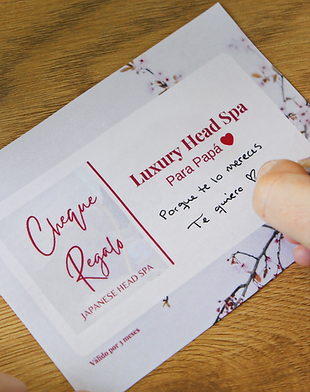 Cheque
Regalo
JAPANESE HEAD SPA
Luxury Head Spa
Para Papá ❤
Porque te lo mereces
Te quiero ♡
Válido por 3 meses